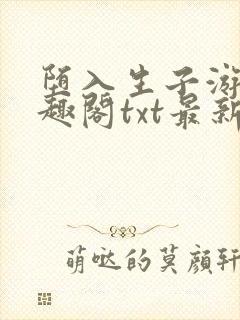 堕入生子游
趣阁txt最新
萌哒的莫颜轩